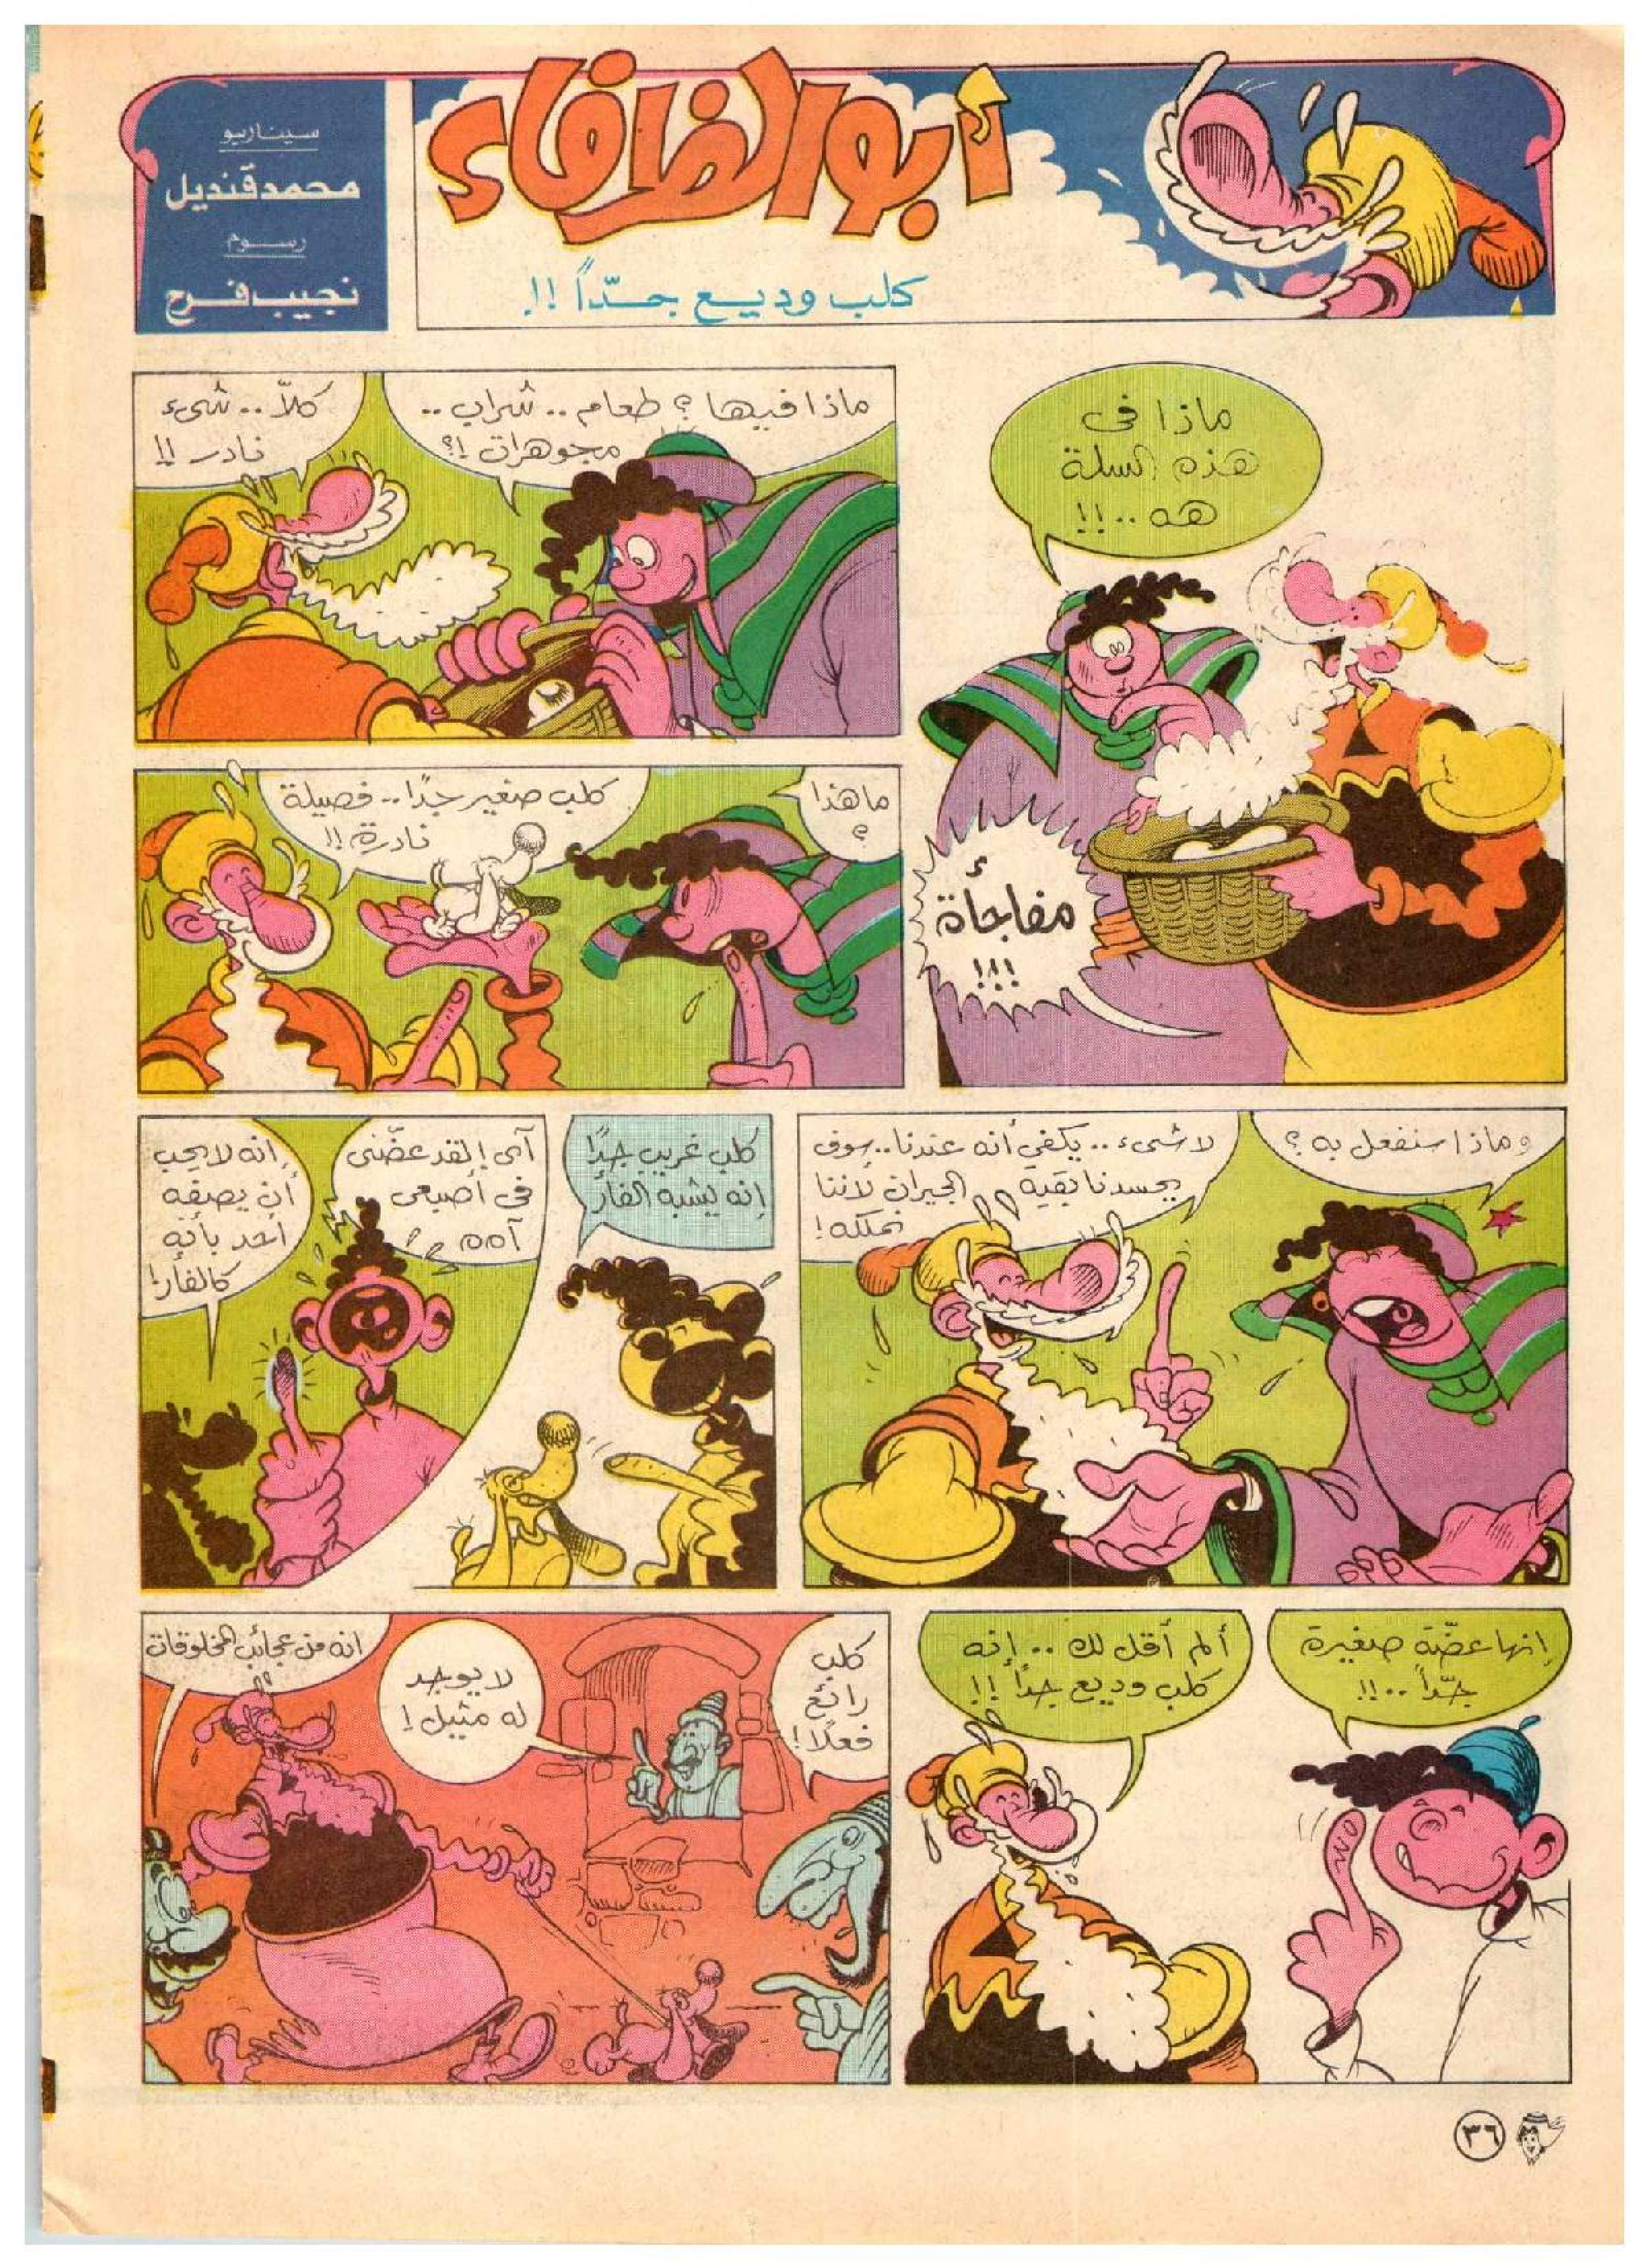 أبو الظرفاء
كلب وديع جدّاً !!
سيناريو
محمد قنديل
رسوم
نجيب فرح
ماذا فى
هذه السلة
هه ..!!
مفاجأة
!!!
ماذا فيها ؟ طعام .. شراب ..
مجوهرات !؟
كلاّ .. شىء
نادر !!
ما هذا
؟
كلب صغير جدًا .. فصيلة
نادرة !!
وماذا سنفعل به ؟
لا شىء .. يكفي أنه عندنا .. سوف
يحسدنا بقية الجيران لأننا
نملكه !
كلب غريب جدًا
إنه يشبه الفأر
آى ! لقد عضّنى
فى أصبعى
آهه
إنه لا يحب
أن يصفه
أحد بأنه
كالفأر !
إنها عضّة صغيرة
جدّاً ..!!
ألم أقل لك .. إنه
كلب وديع جداً !!
كلب
رائع
فعلاً !
لا يوجد
له مثيل !
انه من عجائب المخلوقات
٣٦